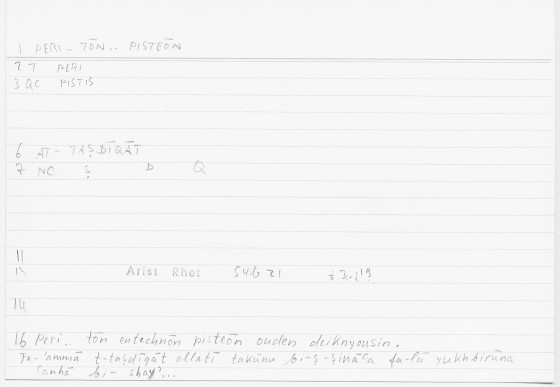 1 PERI.. TŌN.. PISTEŌN
2 T PERI
3 QC PISTIS
6 AT- TAṢDĪQĀT
7 NC Ṣ D Q
11
Arist Rhet 54b21
14
16 Peri.. tōn entechnōn pisteōn ouden deiknyousin.
Fa-'ammā t-taṣdīqāt allatī takūnu bi-ṣ-ṣinā'a fa-lā yukhbirūna
'anhā bi- shay'...